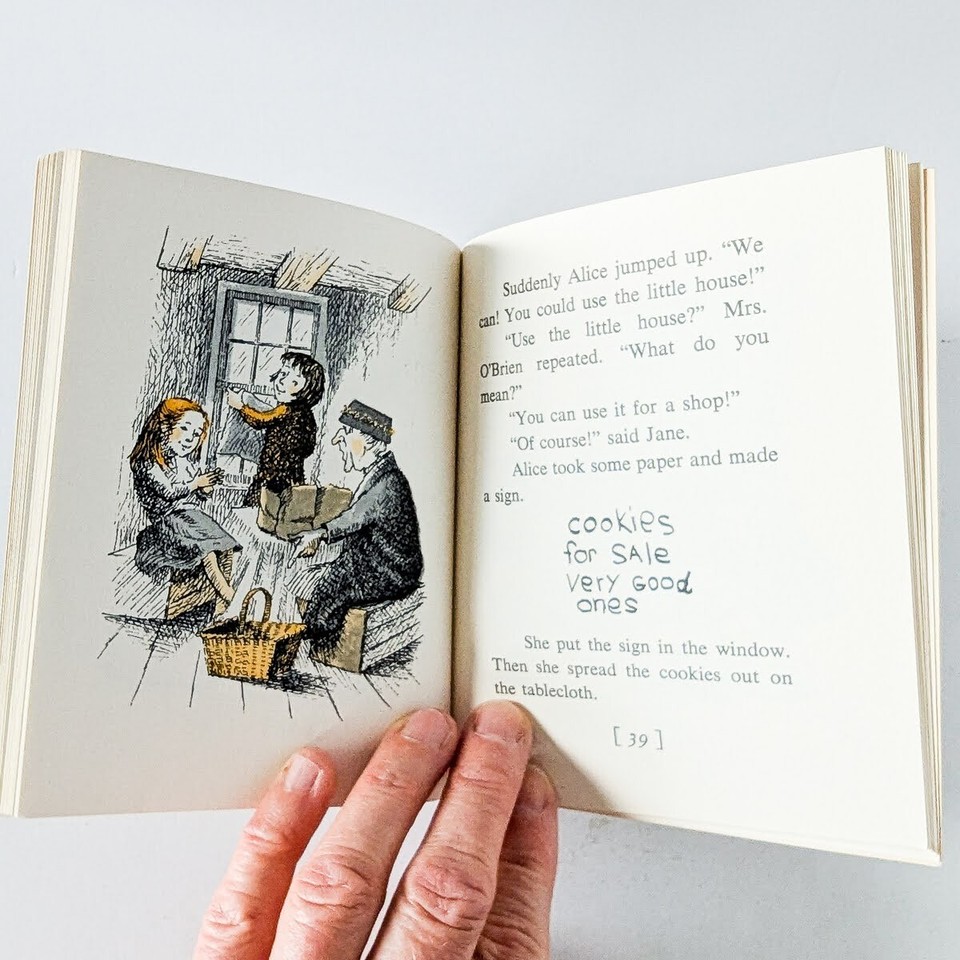 Suddenly Alice jumped up. “We
can! You could use the little house!”
“Use the little house?” Mrs.
O'Brien repeated. “What do you
mean?”
“You can use it for a shop!”
“Of course!” said Jane.
Alice took some paper and made
a sign.
cookies
for SAle
very Good
ones
She put the sign in the window.
Then she spread the cookies out on
the tablecloth.
[ 39 ]